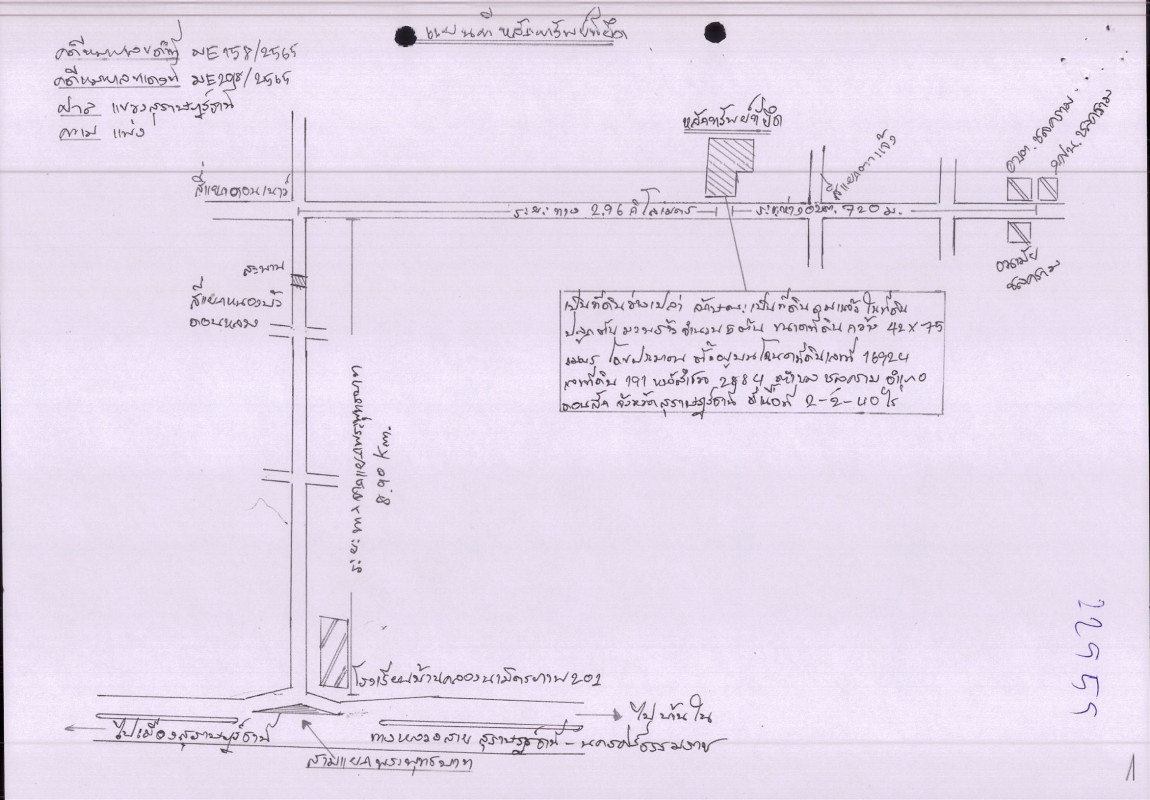 แผนที่ หลักทรัพย์ที่ยึด
คดีหมายเลขดำที่ ผบE158/2565
คดีหมายเลขแดงที่ ผบE208/2565
ศาล แขวงสุราษฎร์ธานี
ความ แพ่ง
หลักทรัพย์ที่ยึด
สี่แยกดอนเนาว์
ระยะทาง 2.96 กิโลเมตร
ระยะห่าง อบต. 720 ม.
อบต. ชลคราม
ชลคราม
อนามัย
ชลคราม
สะพาน
สี่แยกหนองบัว
ดอนหลวง
เป็นที่ดินว่างเปล่า ลักษณะเป็นที่ดินถมแล้ว ในที่ดิน
ปลูกต้นมะพร้าว จำนวน 5 ต้น ขนาดที่ดิน กว้าง 42 x 75
เมตร โดยประมาณ ตั้งอยู่บนโฉนดที่ดินเลขที่ 16924
เลขที่ดิน 191 หน้าสำรวจ 2884 ตำบล ชลคราม อำเภอ
ดอนสัก จังหวัดสุราษฎร์ธานี เนื้อที่ 2-2-40 ไร่
8.90 Km.
โรงเรียนบ้านคลองนามิตรภาพ 201
ไปเมืองสุราษฎร์ธานี
ทางหลวงสาย สุราษฎร์ธานี - นครศรีธรรมราช
ไปบ้านใน
สามแยกพระพุทธบาท
22555
1